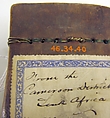 46.34.40
From the
Cameroon District
South Africa